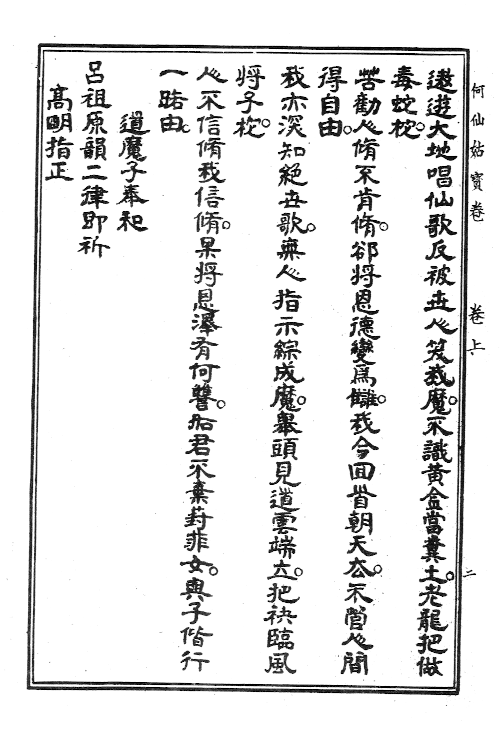 何仙姑寶卷　卷上　二
遨遊大地唱仙歌反被世人笑我魔。不識黃金當糞土。老龍把做
毒蛇梭。
苦勸人脩不肯脩。卻將恩德變爲讎。我今囬首朝天厺。不管人間
得自由。
我亦深知絕世歌。無人指示綜成魔。舉頭見道雲端立。把袂臨風
將子梭。
人不信脩我信脩。果將恩澤有何讐。船君不棄葑菲女。與子偕行
一路由。
道魔子奉和
呂祖原韻二律即祈
高明指正